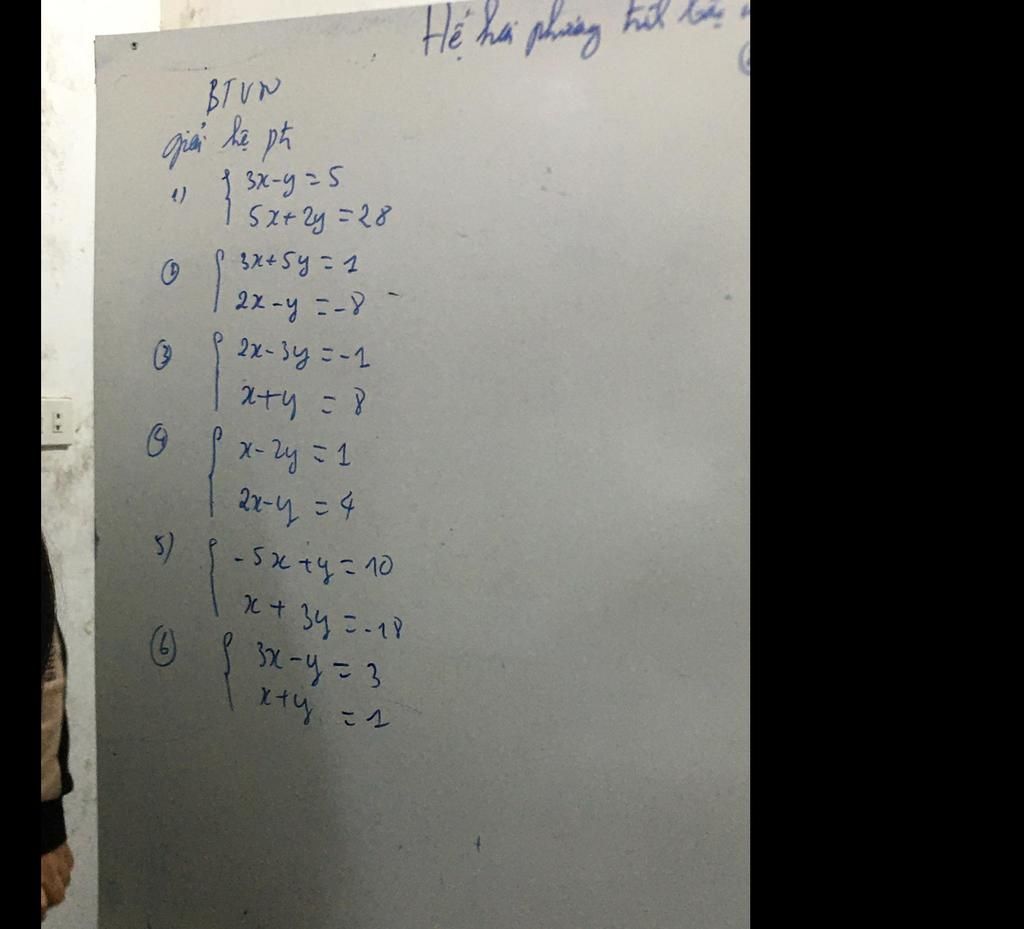 Hệ hai phương
BTVN
giải hệ pt
1) 3x-y=5
5x+2y=28
② 3x+5y=1
2x-y=-8
③ 2x-3y=-1
x+y=8
④ x-2y=1
2x-y=4
5) -5x+y=10
x+3y=-18
⑥ 3x-y=3
x+y=1